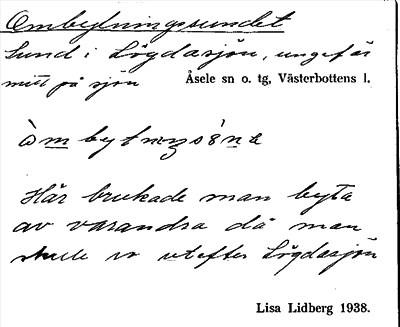 Ombytningssundet
Sund i Lögdasjön, ungefär
mitt på sjön Åsele sn o. tg, Västerbottens l.
Här brukade man byta
av varandra då man
skulle ro utefter Lögdasjön
Lisa Lidberg 1938.